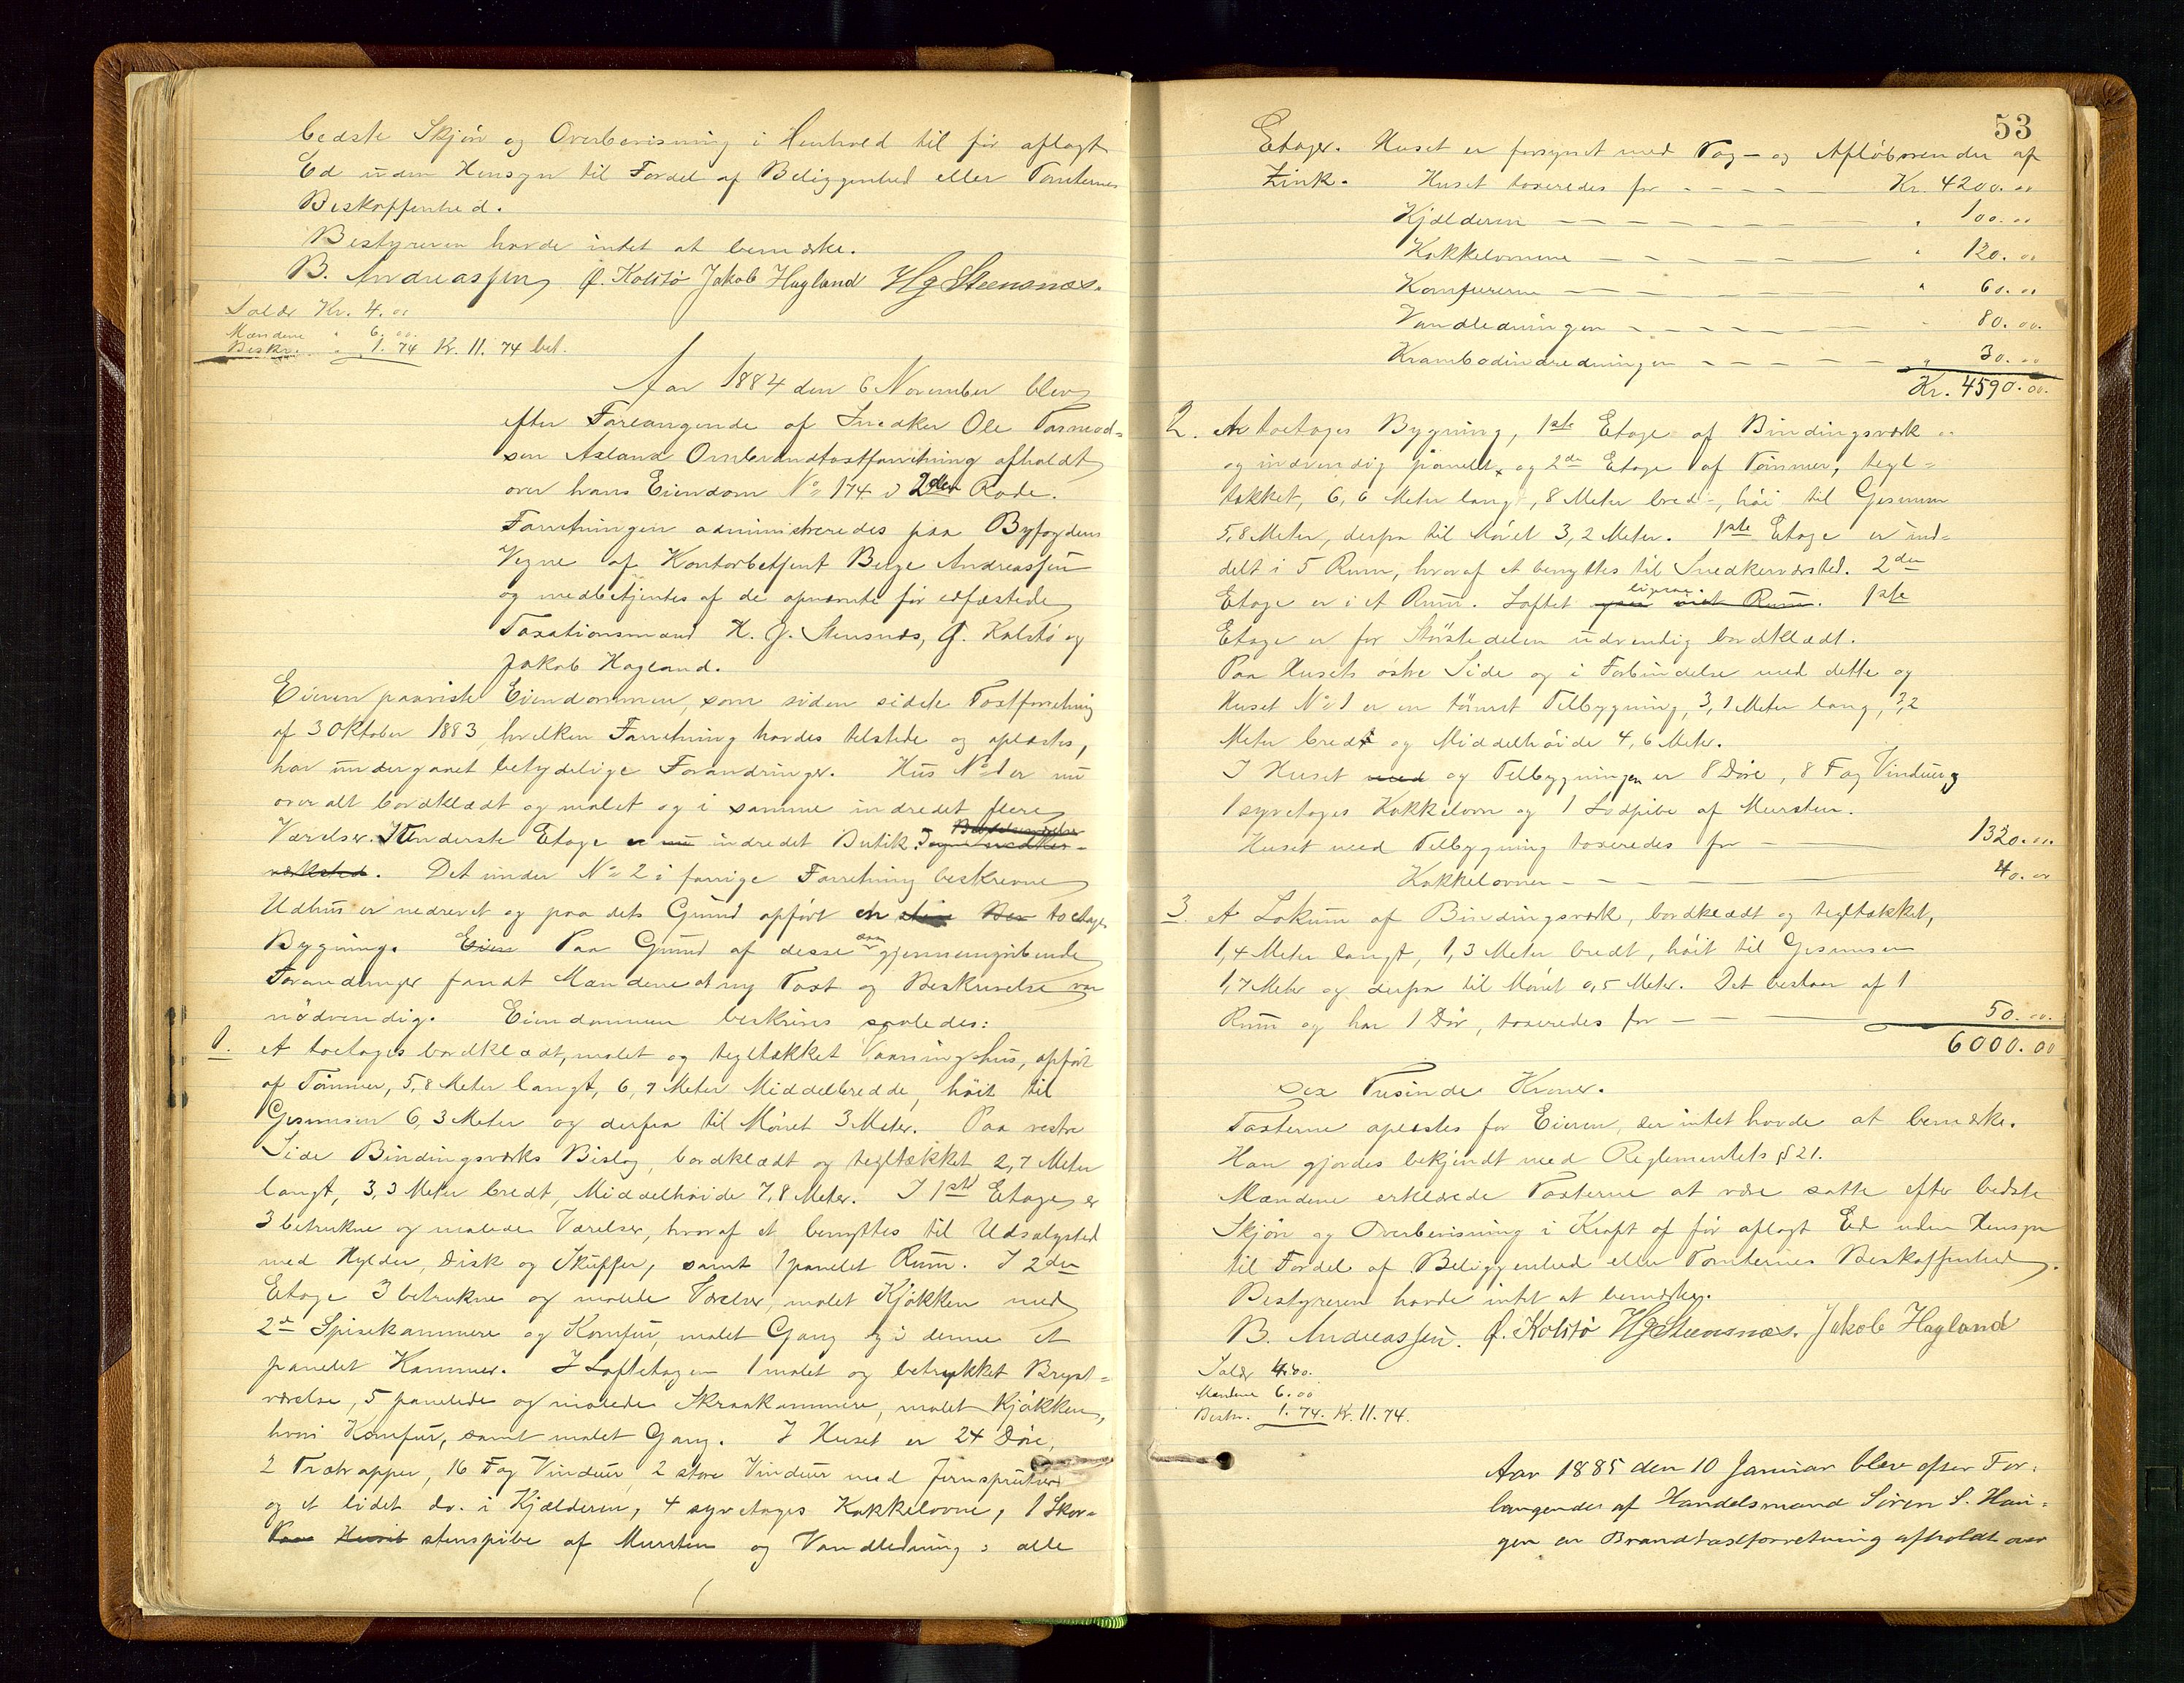 bedste Skjön og Overbevisning i Henhold til för aflagt
Ed uden Hensyn til Fordel af Beliggenhed eller Tomternes
Beskaffenhed.
Bestyreren havde intet at bemærke.
B. Andreassen, Kolstö Jakob Hagland HgSteensnæs.
Salær Kr. 4. 00
Mændene " 6. 00.
Beskr. " 1. 74 Kr. 11. 74 bet.
Aar 1884 den 6 November blev
efter Forlangende af Snedker Ole Tormod-
sen Asland Ombrandtaxtforretning afholdt
over hans Eiendom No 174 i 2den Rode.
Forretningen administreredes paa Byfogdens
Vegne af Kontorbetjent Berge Andreassen
og medbetjentes af de opnævnte för edfæstede
Taxationsmænd H. G. Stensnæs, Kolstö og
Jakob Hagland.
Eieren paaviste Eiendommen, som siden sidste Taxtforretning
af 3 Oktober 1883, hvilken Forretning havdes tilstede og oplæstes,
har undergaaet betydelige Forandringer. Hus No 1 er nu
overalt bordklædt og malet og i samme indredet flere
Værelser. I Underste Etage er nu indredet Butik.
værksted. Det under No 2 i forrige Forretning beskrevne
Udhus er nedrevet og paa dets Grund opfört en toetages
Bygning. Eien Paa Grund af disse saa gjennemgribende
Forandringer fandt Mændene at ny Taxt og Beskrivelse var
nödvendig. Eiendommen beskrives saaledes:
1. et toetages bordklædt, malet og tegltækket Vaaningshus, opfört
af Tömmer, 5,8 Meter langt, 6,7 Meter Middelbredde, höit til
Gesimsen 6,3 Meter og derfra til Mönet 3 Meter. Paa vestre
Side Bindingsværks Bislag, bordklædt og tegltækket 2,7 Meter
langt, 3,3 Meter bredt, Middelhöide 7,8 Meter. I 1ste Etage er
3 betrukne og malede Værelser, hvoraf et benyttes til Udsalgsted
med Hylder, Disk og Skuffer, samt 1 panelet Rum. I 2den
Etage 3 betrukne og malede Værelser, malet Kjökken med
2de Spisekammere og Komfur, malet Gang og i denne et
panelet Kammer. I Loftetagen 1 malet og betrykket Bryst-
værelse, 5 panelede og malede Skraakammere, malet Kjökken,
hvori Komfur, samt malet Gang. I Huset er 24 Döre,
2 Trætrapper, 16 Fag Vinduer, 2 store Vinduer med Jernsprutser
og et lidet do. i Kjælderen, 4 syvetages Kakkelovne, 1 Skor-
Paa Huset stenspibe af Mursten og Vandledning i alle
53
Etager. Huset er forsynet med Tag- og Aflöbsrender af
Zink. Huset taxeredes for - - - - Kr. 4200. 00
Kjælderen - - - - - - " 100. 00
Kakkelovnene - - - - - " 120. 00
Komfurerne - - - - - " 60. 00
Vandledningen - - - - - " 80. 00.
Krambodindredningen - - - - " 30. 00
Kr. 4590. 00.
2. en toetages Bygning, 1ste Etage af Bindingsværk
og indvendig panelet, og 2de Etage af Tömmer, tegl-
tækket, 6,6 Meter lang, 8 Meter bred, höi til Gesimsen
5,8 Meter, derfra til Mönet 3,2 Meter. 1ste Etage er ind-
delt i 5 Rum, hvoraf et benyttes til Snedkerværksted. 2den
Etage er i et Rum. Loftet ligesaa. 1ste
Etage er for Störstedelen udvendig bordklædt.
Paa Husets östre Side og i Forbindelse med dette og
Huset No 1 er en tömret Tilbygning, 3,1 Meter lang, 3,2
Meter bred og Middelhöide 4,6 Meter.
I Huset med og Tilbygningen er 8 Döre, 8 Fag Vinduer,
1 syvetages Kakkelovn og 1 Lodpibe af Mursten.
Huset med Tilbygning taxeredes for - 1320. 00.
Kakkelovnen - - - 40. 00
3. et Lokum af Bindingsværk, bordklædt og tegltækket,
1,4 Meter langt, 1,3 Meter bredt, höit til Gesimsen
1,7 Meter og derfra til Mönet 0,5 Meter. Det bestaar af 1
Rum og har 1 Dör, taxeredes for - - - 50. 00.
6000. 00
sex Tusinde Kroner.
Taxterne oplæstes for Eieren, der intet havde at bemærke.
Han gjordes bekjendt med Reglementets § 21.
Mændene erklærede Taxterne at være satte efter bedste
Skjön og Overbevisning i Kraft af för aflagt Ed uden Hensyn
til Fordel af Beliggenhed eller Tomternes Beskaffenhed.
Bestyreren havde intet at bemærke.
B. Andreassen. Kolstö HgSteensnæs. Jakob Hagland
Salær 4.00.
Mændene 6. 00
Beskr. 1. 74. Kr. 11. 74.
Aar 1885 den 10 Januar blev efter For-
langendes af Handelsmand Sören S. Hau-
gen en Brandtaxtforretning afholdt over